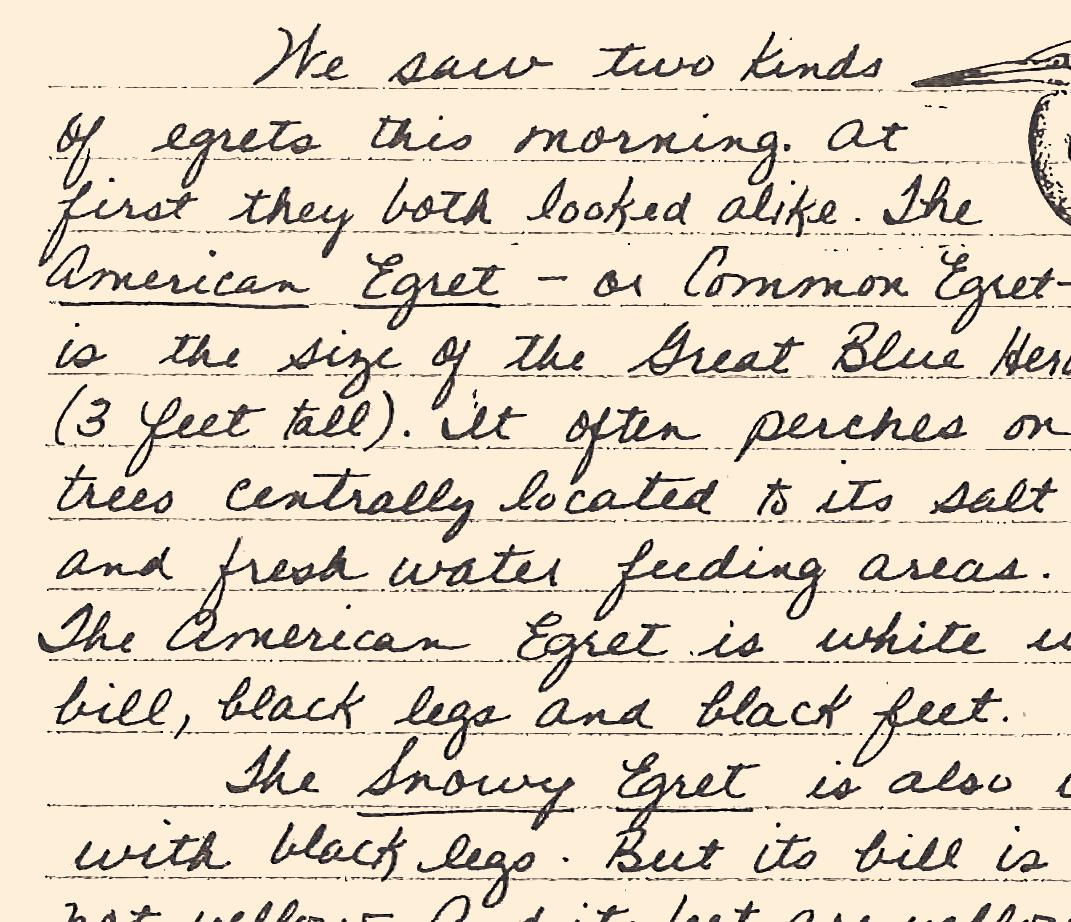 We saw two kinds
of egrets this morning. At
first they both looked alike. The
American Egret - or Common Egret-
is the size of the Great Blue
(3 feet tall). It often perches on
trees centrally located to its salt
and fresh water feeding areas.
The American Egret is white
bill, black legs and black feet.
The Snowy Egret is also
with black legs. But its bill is
not yellow. And its feet are